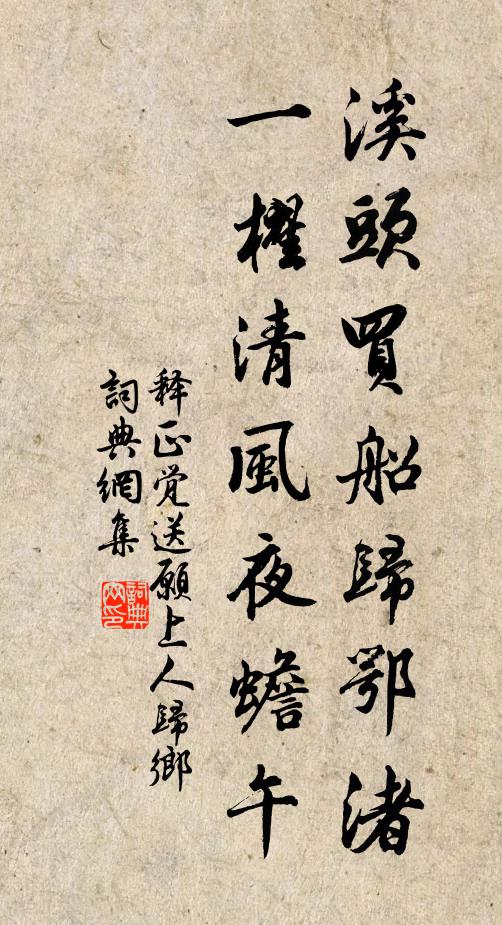 溪頭買船歸鄂渚
一櫂清風夜蟾午
释正觉送願上人歸鄉
詞典網集
詞典网印